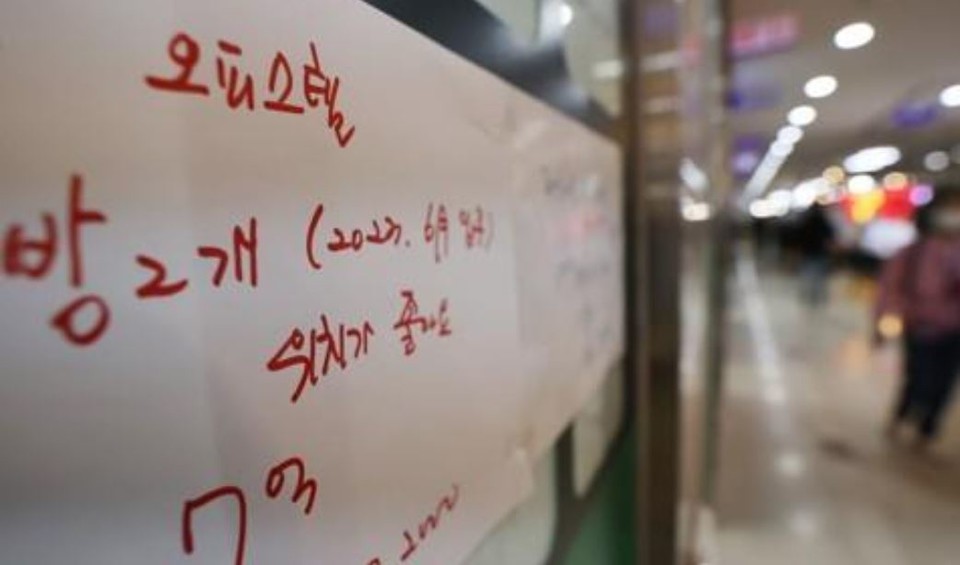 오피스텔
방 2개 (2023. 6月 입주)
위치가 좋아요
7억
2000